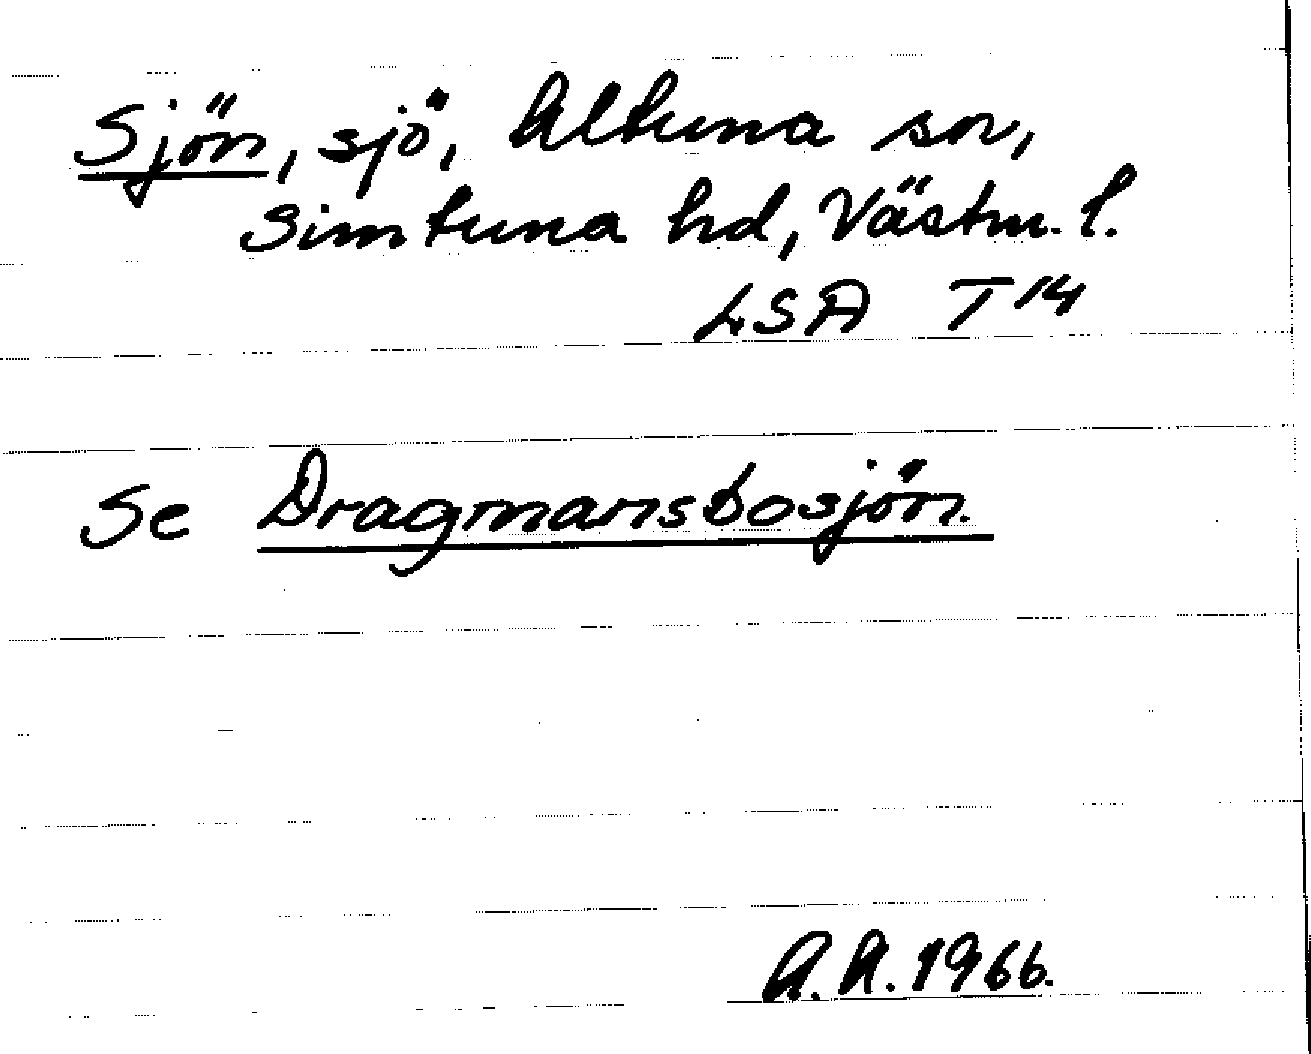 Sjön, sjö, Altuna sn,
Simtuna hd, Västm. l.
LSA T 14
Se Dragmansbosjön.
A.A. 1966.